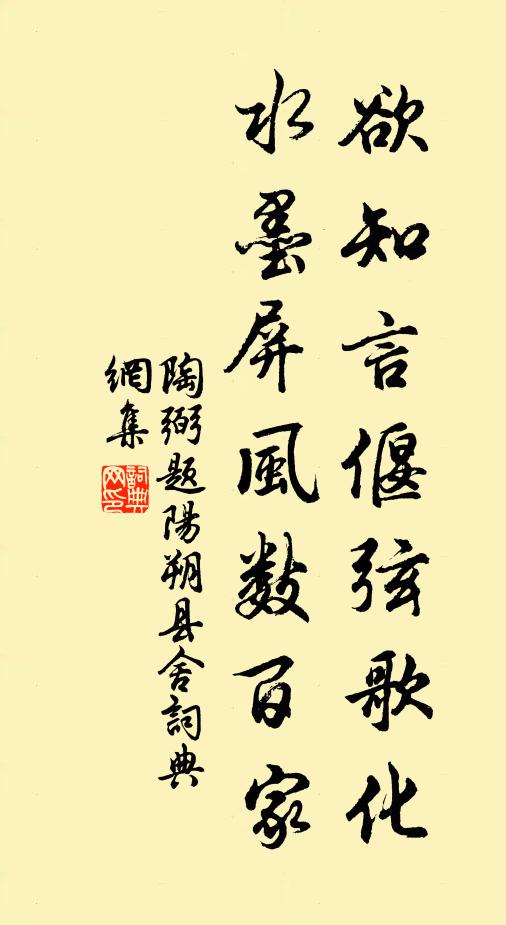 欲知言偃弦歌化
水墨屏風數百家
陶弼題陽朔县舍詞典
網集
詞典
网印